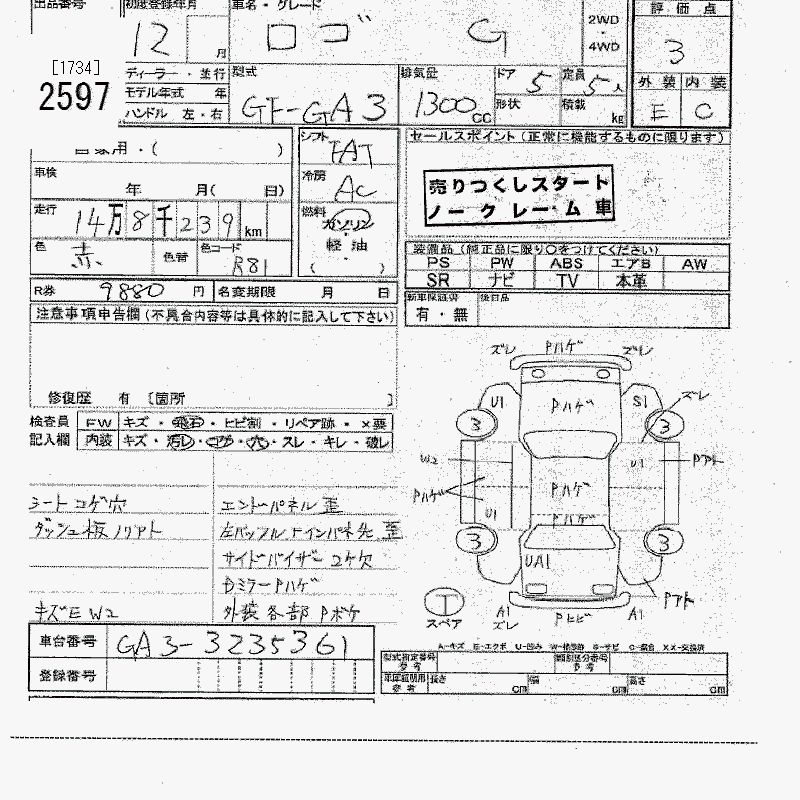 出品番号 初度登録年月 車名・グレード 2WD 評価点
12 月 ロゴ G ・ 3
4WD
[1734]
2597
ディーラー・並行 型式 排気量 ドア 5 定員 5人 外装 内装
モデル年式 年 GF-GA3 1300cc E C
ハンドル 左・右 形状 積載 kg
自家用・( ) シフト FAT セールスポイント(正常に機能するものに限ります)
車検 年 月( 日) 冷房 AC
売りつくしスタート
ノークレーム車
走行 14万8千239km 燃料 ガソリン
・
軽油
( )
色 赤 色替 色コード R81
装備品(純正品に限り〇をつけてください)
PS PW ABS エアB AW
SR ナビ TV 本革
R券 9880 円 名変期限 月 日
新車保証書 後日品
有・無
注意事項申告欄(不具合内容等は具体的に記入して下さい)
修復歴 有 〔箇所 〕
検査員 FW キズ・飛石・ヒビ割・リペア跡・×要
記入欄 内装 キズ・汚レ・コゲ・穴・スレ・キレ・破レ
シートコゲ穴 エンドパネル歪
ダッシュ板ノリアト
サイドバイザー
DミラーPハゲ
キズE W2 外装各部Pボケ
ズレ Pハゲ ズレ
U1 Pハゲ S1 ズレ
3 3
W2 U1 Pアト
Pハゲ Pハゲ
U1 Pハゲ
3 3
UA1
Pアト
T
スペア
A1 ズレ Pヒビ A1
車台番号 GA3-3235361
登録番号
A-キズ E-エクボ U-凹み
型式指定番号 参考 類別区分番号 参考
車庫証明用 参考 長さ cm 幅 cm 高さ cm